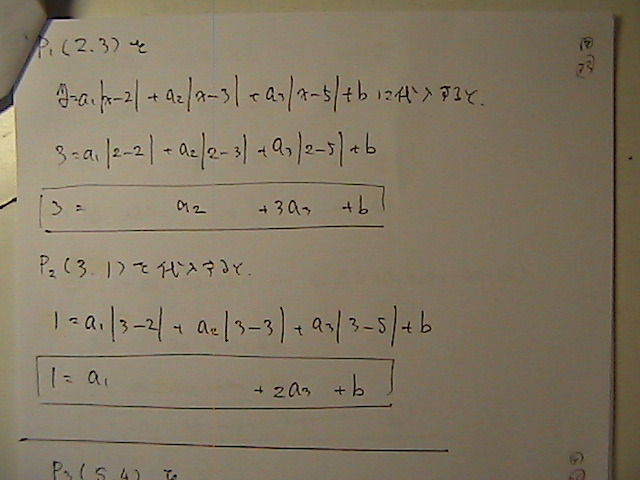 P₁(2.3)を
y=a₁|x-2|+a₂|x-3|+a₃|x-5|+bに代入すると.
3=a₁|2-2|+a₂|2-3|+a₃|2-5|+b
3= a₂ +3a₃ +b
P₂(3.1)を代入すると.
1=a₁|3-2|+a₂|3-3|+a₃|3-5|+b
1=a₁ +2a₃ +b
P₃(5.4)を